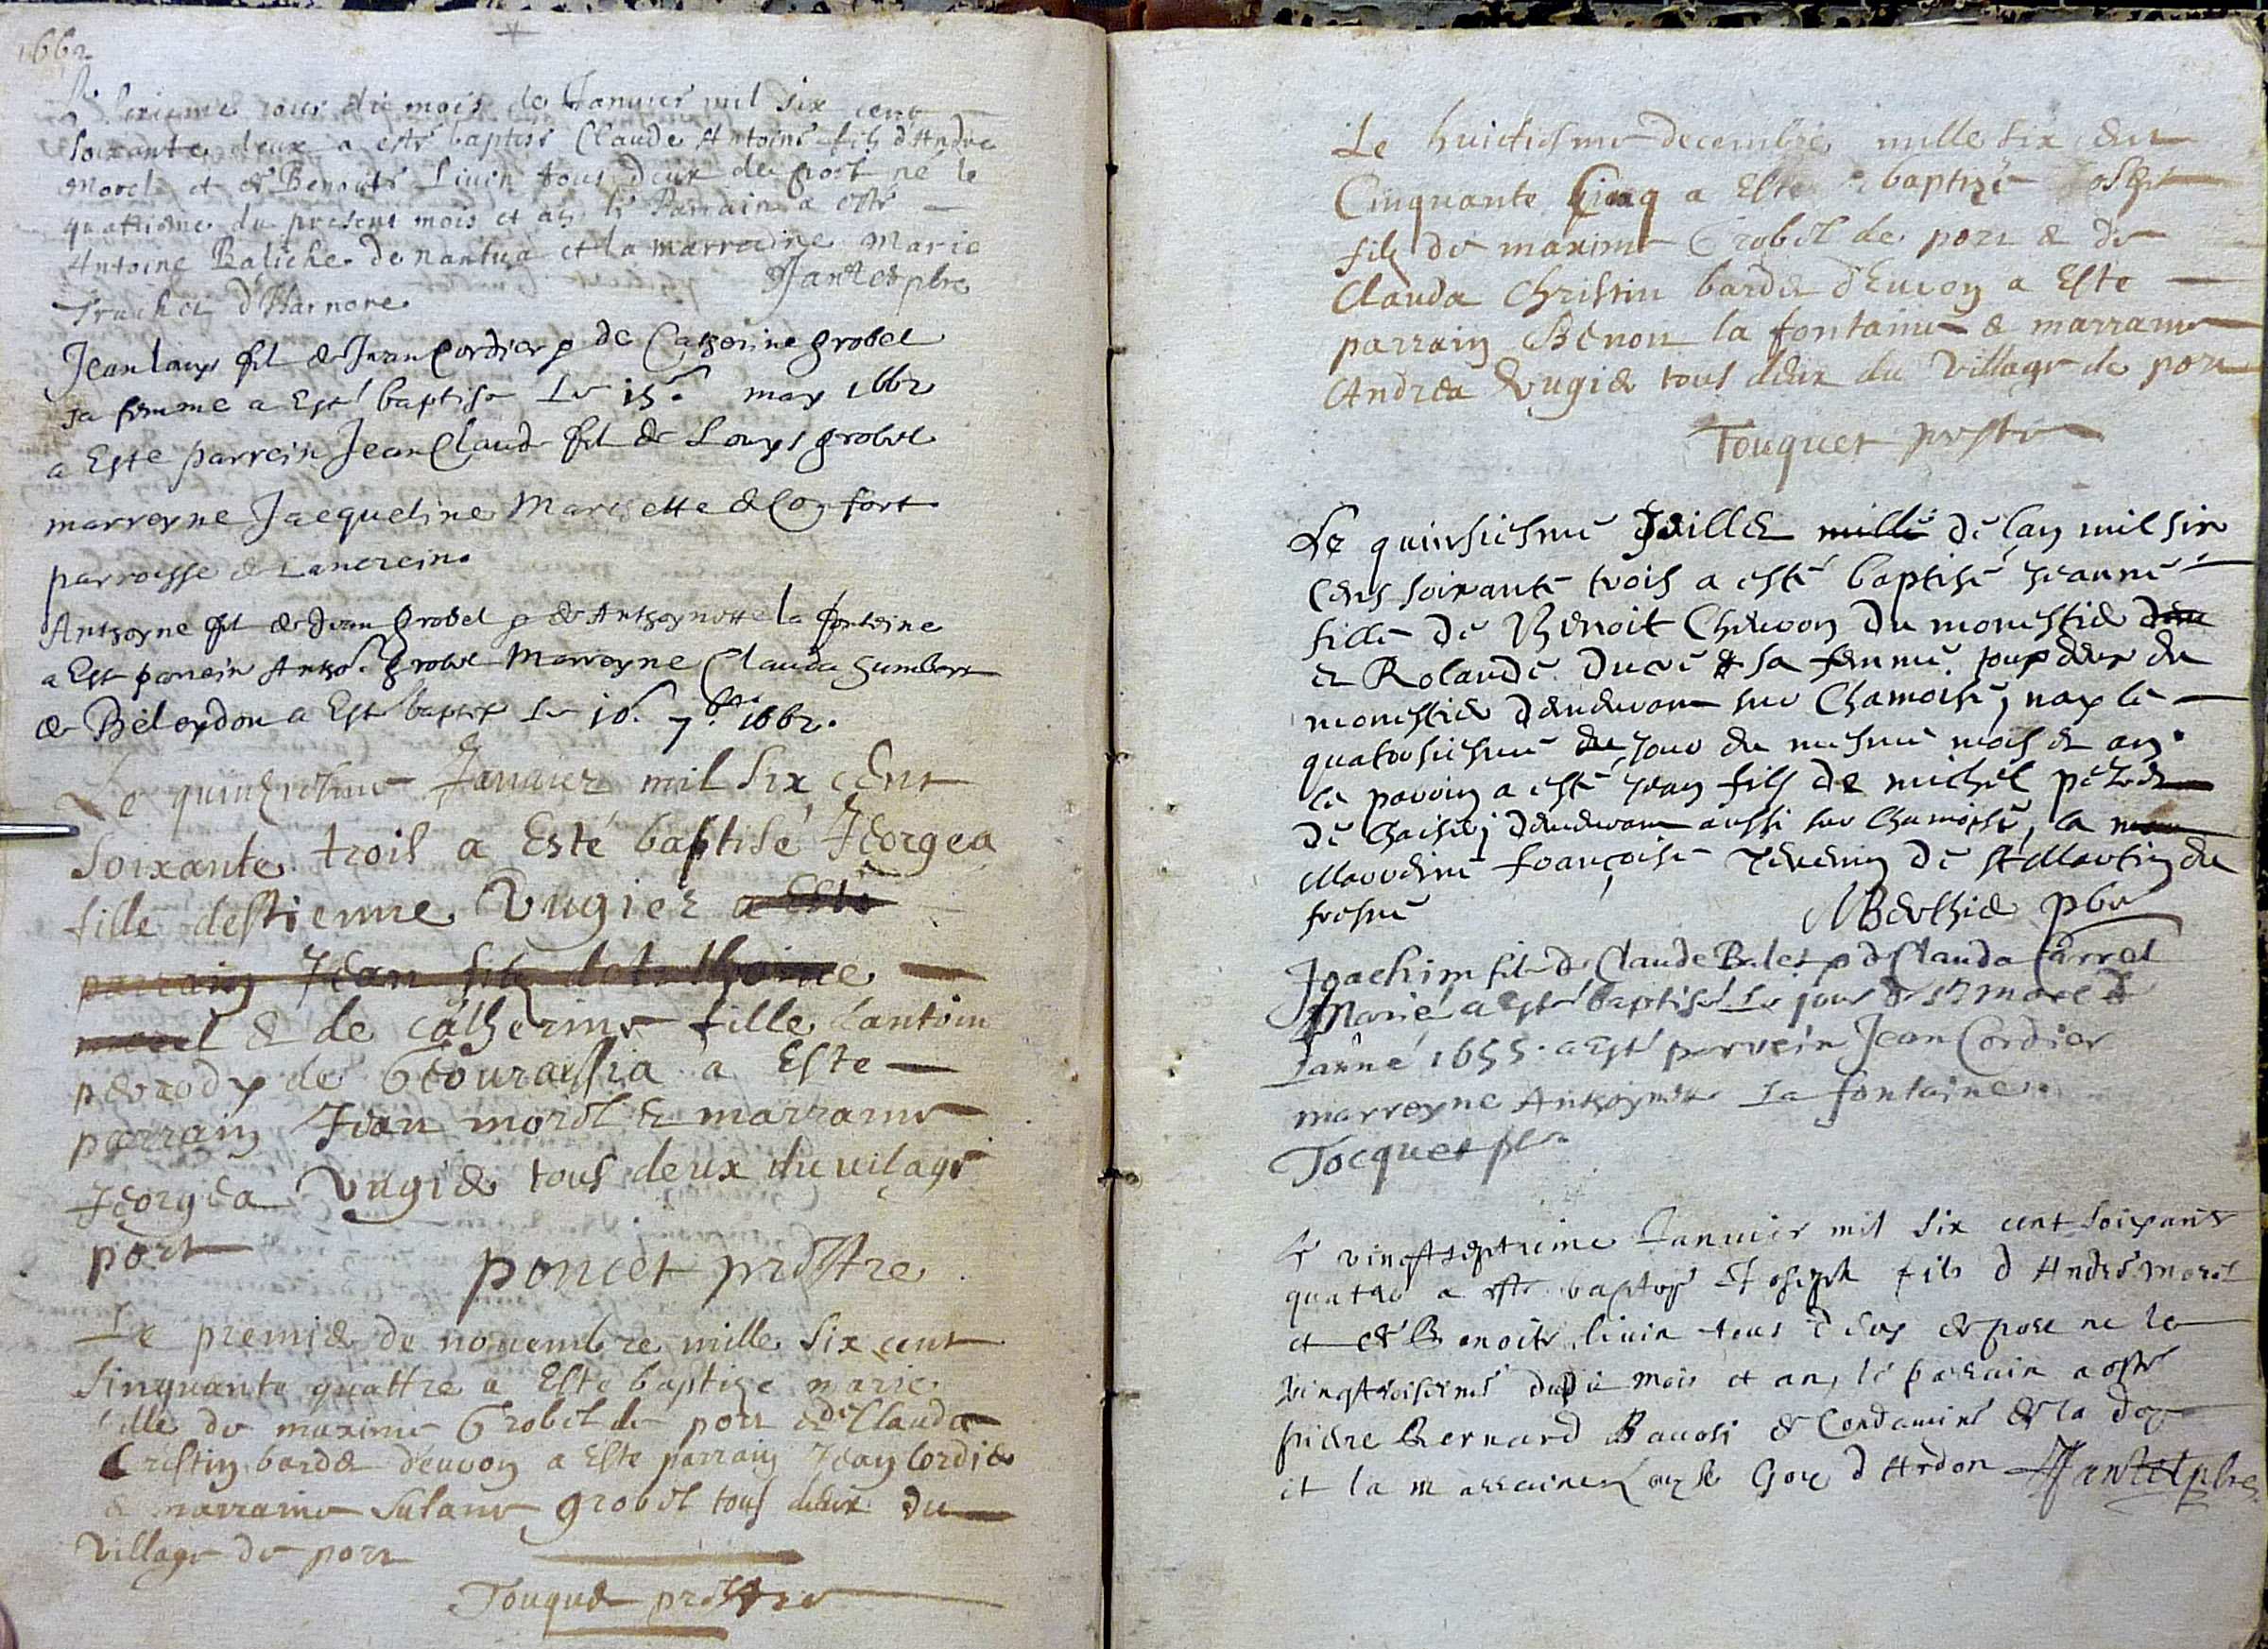 1662
jour du mois de Januier mil six cent
soixante deux a esté baptisé Claude Antoine fils d'Andre
Morel et de Benoite Liuin tous deux de port né le
quattrieme du present mois et an le Parrain a esté
Antoine Baliche de nantua et la marraine Marie
Jantet pbre
Truchet d'Harnore
Jean louys fil de Jean Cordier & de Catherine grobel
sa femme a Esté baptisé Le 15e may 1662
a Este parrein Jean Claude fil de Louys grobel
marreyne Jacqueline Marchette de Confort
parroisse de Lancrein.
Anthoyne fil de Jean Grobel & de Anthoynette la fonteine
a Esté parrein Antho. Grobel Marreyne Clauda humbert
de Beleydou a Esté baptisé Le 10e 7bre 1662.
Le quinziesme Januier mil six cent
soixante trois a Esté baptisé Jeorgea
fille destienne Vugier a Esté
parrain Jean fils
morel & de catherine fille dantoine
perrody de Gcouraissia a Este
parrain Jean morel & marraine
Jeorgea Vugier tous deux du uilage
port
poncet prestre
Le premier de nouembre mille six cent
sinquante quattre a Este baptize marie
fille de maxime Grobel de port & de Clauda
Cristin bardet deuuoy a Este parrain Jean Cordier
& marraine Susane grobel tous deux du
village de port
Touquet prestre
Le huictiesme decembre mille six cent
Cinquante Cinq a Este baptizé
fils de maxime Grobel de port & de
Clauda Christin bardet dEuuoy a Este
parrain Benoit la fontaine & marraine
Andrea Vugier tous deux du village de port
Touquet prestre
Le quinsiesme Juillet mille de lan mil six
cens soixante trois a esté baptisé jeanne
fille de Benoit Cheuron du monestier
et Rolande Ducré sa femme tous deux du
monestier demeurant sur Chamoise, nay le
quatorsiesme du jour du mesme mois et an.
le parrin a esté jean fils de michel
de Chaisey demeurant aussi sur Chamoise, la
Marreine francoise Teuenin de St Martin du
fresne
Berthier pbre
Joachim fil de Claude Balet & de Clauda Carrel
Marié a Esté baptisé Le jour de St Marc de
Lanné 1655. a Esté parrein Jean Cordier
marreyne Anthoynette La fontaine.
Tocquet pbre
Le vingtseptieme Januier mil six cent soixante
quatre a este baptisé Joseph fils d'André Morel
et de Benoite liuin tous deux de port ne le
vingttroisieme dudit mois et an, le parrain a esté
pierre Bernard Bauosi de Condamine de la doye
et la marraine Goy d'Ardon Jantet pbre